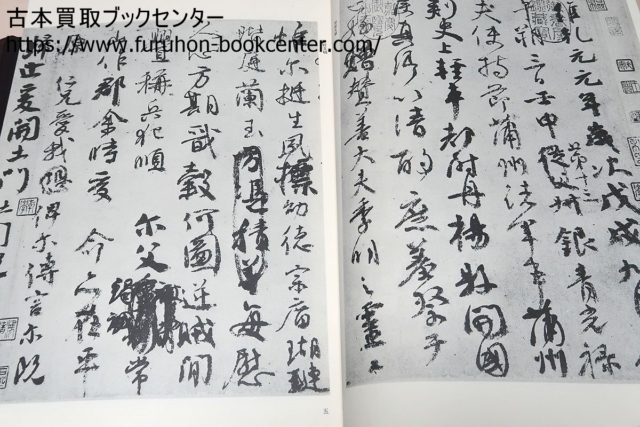 古本買取ブックセンター
https://www.furuhon-bookcenter.com/
維乾元元年歲次戊戌九
三日壬申第十三從父叔銀青光祿
夫使持節蒲州諸軍事蒲州
刺史上輕車都尉丹楊縣開國
侯真卿以清酌庶羞祭于
姪贈贊善大夫季明之靈曰
惟爾挺生夙標幼德宗廟瑚璉
階庭蘭玉方憑積善每慰
人心方期戩穀何圖逆賊間
釁稱兵犯順爾父竭誠常
山作郡余時受命亦在平
原仁兄愛我俾爾傳言爾既
歸止爰開土門土門
五